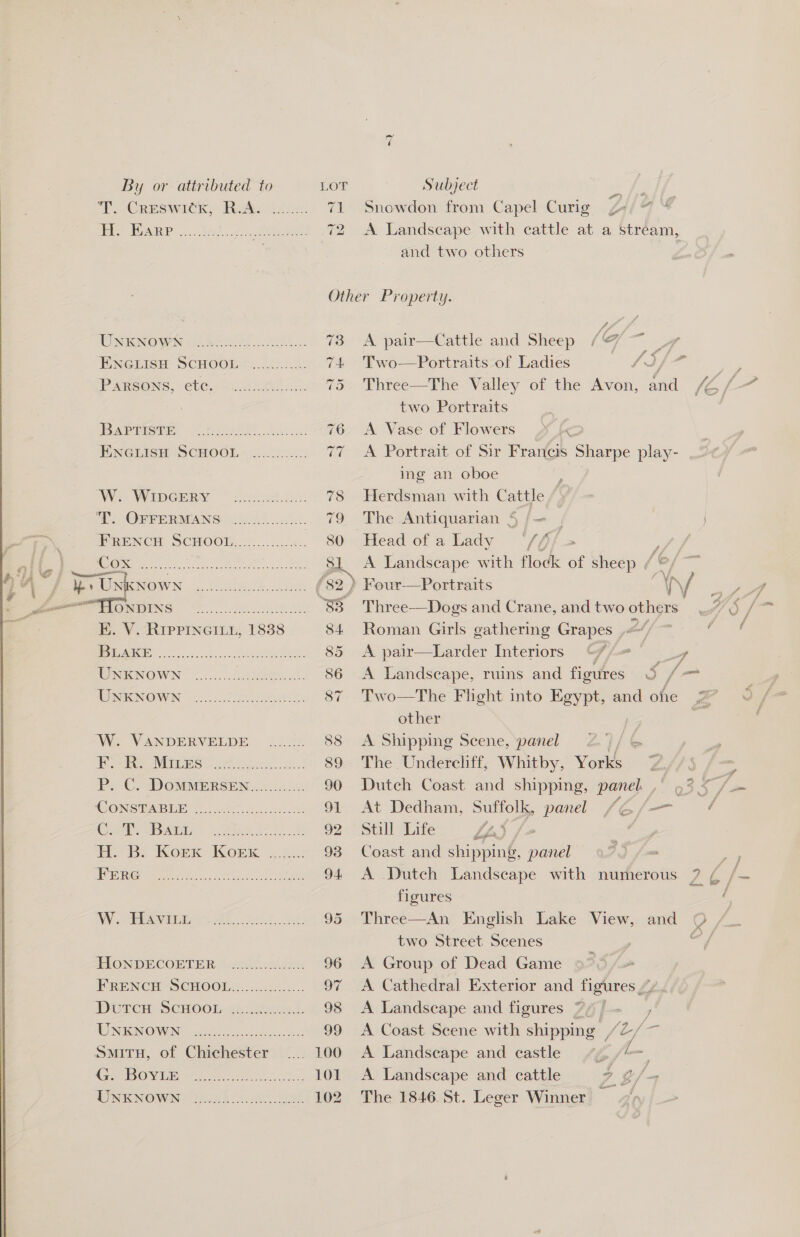 7
By or attributed to LOT Subject
T. CRESWICK, R.A. ........ 71 Snowdon from Capel Curig
H. EARP ........ 72 A Landscape with cattle at a stream,
and two others
Other Property.
UNKNOWN ........ 73 A pair—Cattle and Sheep
ENGLISH SCHOOL ........ 74 Two—Portraits of Ladies
PARSONS, etc. ........ 75 Three—The Valley of the Avon, and
two Portraits
BAPTISTE ........ 76 A Vase of Flowers
ENGLISH SCHOOL ........ 77 A Portrait of Sir Francis Sharpe play-
ing an oboe
W. WIDGERY ........ 78 Herdsman with Cattle
T. OFFERMANS ........ 79 The Antiquarian 5/-
FRENCH SCHOOL ........ 80 Head of a Lady
COX ........ 81 A Landscape with flock of sheep
UNKNOWN ........ 82 Four—Portraits
HONDINS ........ 83 Three—Dogs and Crane, and two others
E. V. RIPPINGILL, 1838 84 Roman Girls gathering Grapes
BLAKE ........ 85 A pair—Larder Interiors
UNKNOWN ........ 86 A Landscape, ruins and figures 5/-
UNKNOWN ........ 87 Two—The Flight into Egypt, and one
other
W. VANDERVELDE ........ 88 A Shipping Scene, panel
F. R. MILES ........ 89 The Undercliff, Whitby, Yorks
P. C. DOMMERSEN ........ 90 Dutch Coast and shipping, panel
CONSTABLE ........ 91 At Dedham, Suffolk, panel
C. T. BALL ........ 92 Still Life
H. B. KOEK KOEK ........ 93 Coast and shipping, panel
BERG ........ 94 A Dutch Landscape with numerous
figures
W. HAVILL ........ 95 Three—An English Lake View, and
two Street Scenes
HONDECOETER ........ 96 A Group of Dead Game
FRENCH SCHOOL ........ 97 A Cathedral Exterior and figures
DUTCH SCHOOL ........ 98 A Landscape and figures
UNKNOWN ........ 99 A Coast Scene with shipping
SMITH, of Chichester .... 100 A Landscape and castle
G. BOYLE ........ 101 A Landscape and cattle
UNKNOWN ........ 102 The 1846 St. Leger Winner